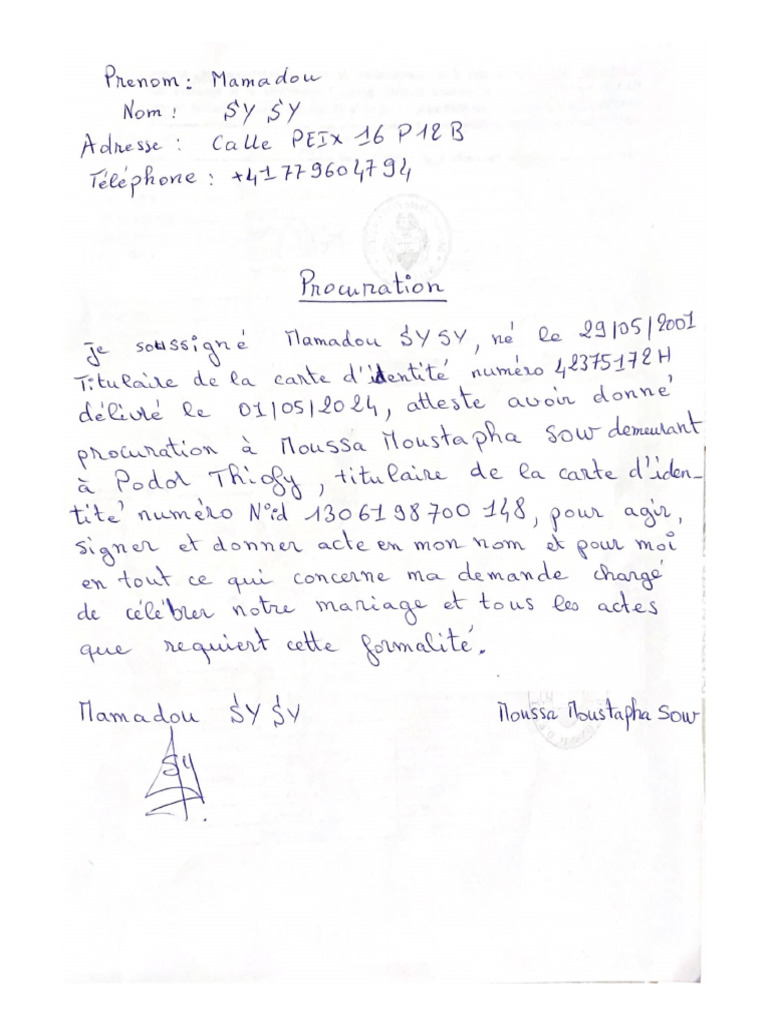 Prenom : Mamadou
Nom : SY SY
Adresse : Calle PEIX 16 P12B
Téléphone : +41779604794
Procuration
je soussigné Mamadou SY SY, né le 29/05/2001
Titulaire de la carte d'identité numéro 42375172H
délivré le 01/05/2024, atteste avoir donné
procuration à Moussa Moustapha Sow demeurant
à Podor Thiofy, titulaire de la carte d'iden-
tité numéro N°id 1306198700148, pour agir,
signer et donner acte en mon nom et pour moi
en tout ce qui concerne ma demande chargé
de célébrer notre mariage et tous les actes
que requiert cette formalité.
Mamadou SY SY
Moussa Moustapha Sow
SY